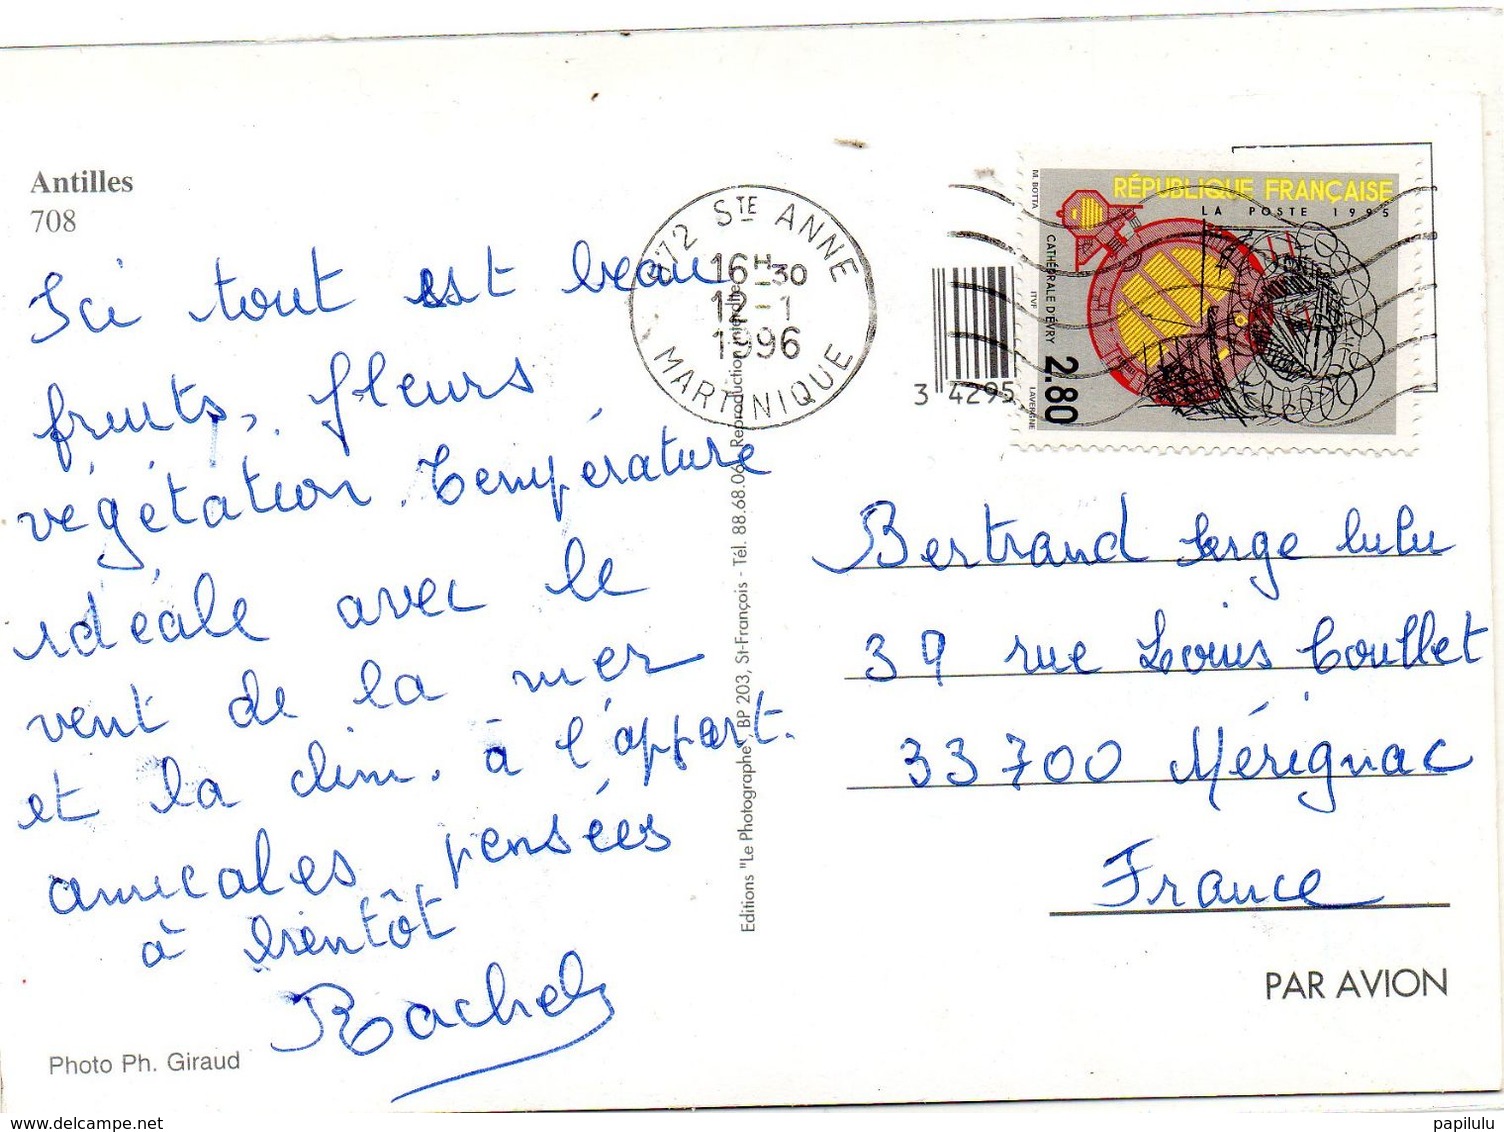 Antilles
708
Ici tout est beau
fruits, fleurs
végétation. Température
idéale avec le
vent de la mer
et la clim. à l'appart.
amicales pensées
à bientôt
Rachel
Photo Ph. Giraud
972 STE ANNE
16H30
12-1
1996
MARTINIQUE
Editions "Le Photographe", BP 203, St-François - Tél. 88.68.06 Reproduction interdite
3 4295
RÉPUBLIQUE FRANÇAISE
LA POSTE 1995
M. BOTTA
CATHÉDRALE D'ÉVRY
ITVF
LAVERGNE
2.80
Bertrand Serge lulu
39 rue Louis Coullet
33700 Mérignac
France
PAR AVION
www.delcampe.net
papilulu